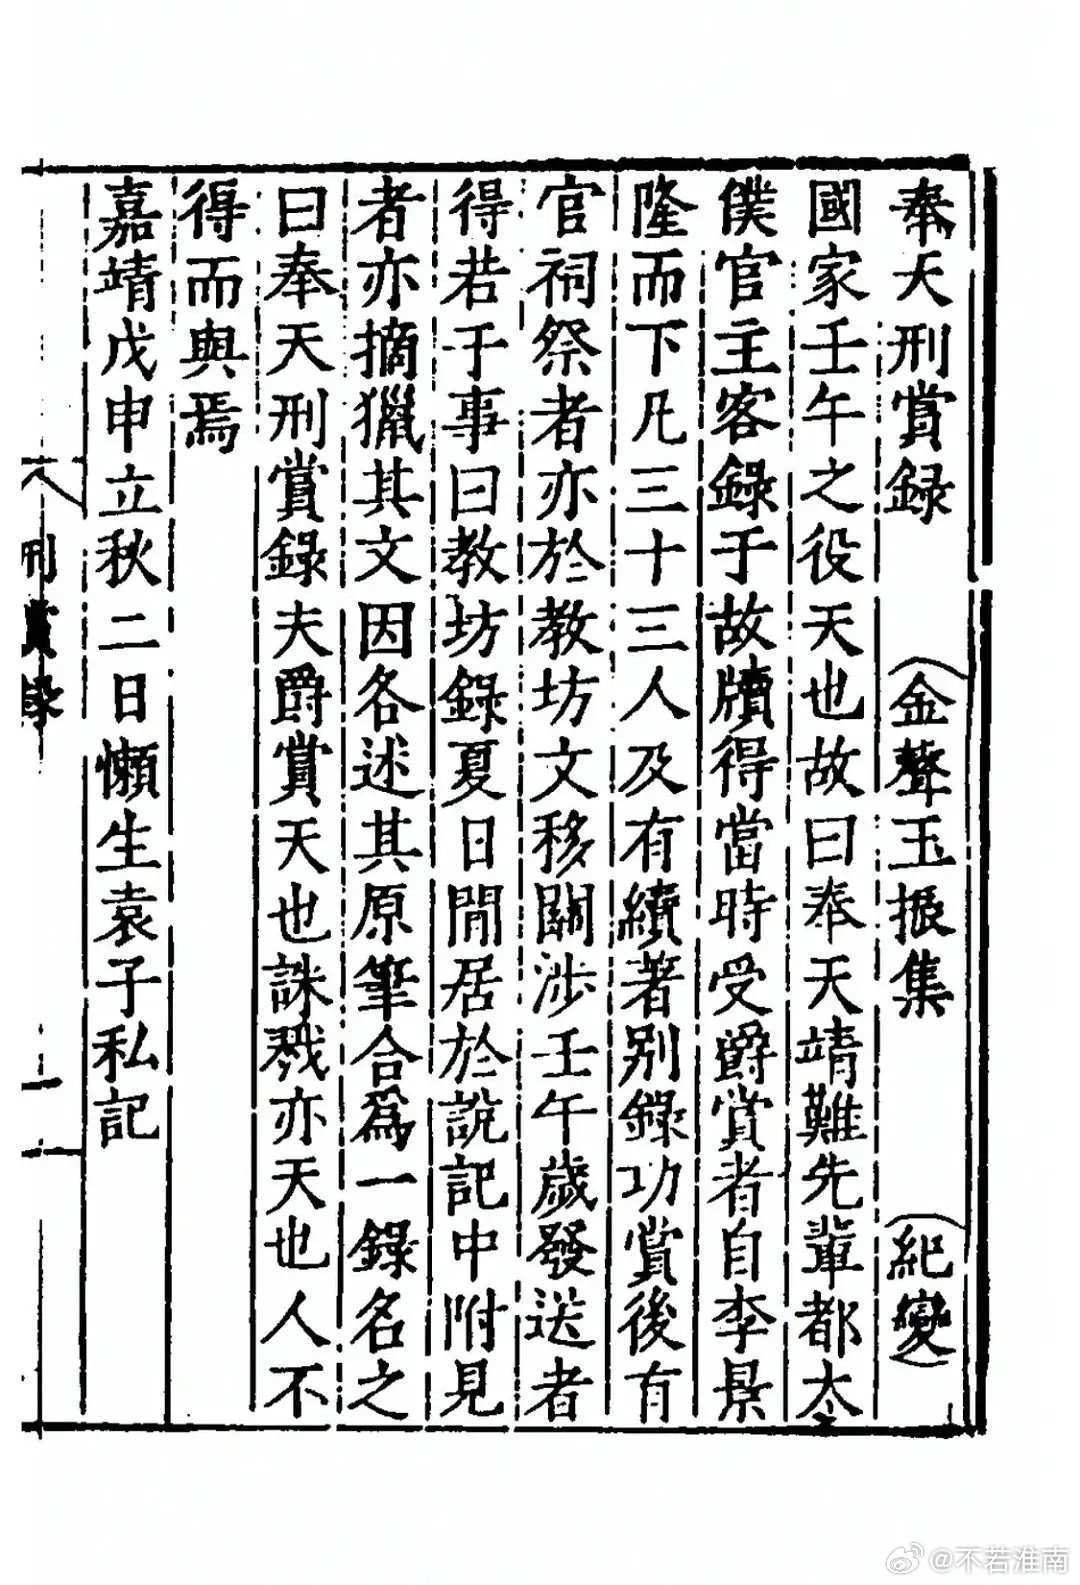 奉天刑賞録 （金聲玉振集 （紀變）
國家壬午之役天也故曰奉天靖難先輩都太
僕官主客錄于故牘得當時受爵賞者自李景
隆而下凡三十三人及有續著别錄功賞後有
官祠祭者亦於教坊文移關涉壬午歲發送者
得若于事曰教坊錄夏日閒居於說記中附見
者亦摘獵其文因各述其原筆合爲一錄名之
曰奉天刑賞錄夫爵賞天也誅戮亦天也人不
得而與焉
嘉靖戊申立秋二日懶生袁子私記
刑賞錄
一
@不若淮南